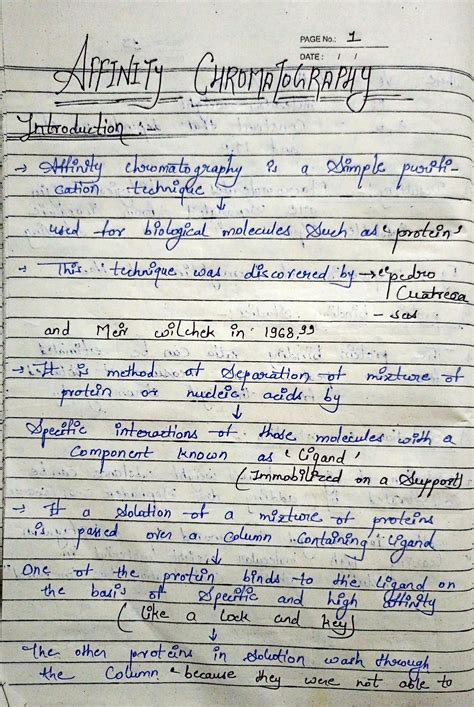 PAGE No.: 1
DATE: / /
AFFINITY CHROMATOGRAPHY
Introduction :-
→ Affinity chromatography is a Simple purifi-
cation technique
↓
used for biological molecules Such as 'protein'
→ This technique was discovered by → "pedro
Cuatreca
- sas
and Meir wilchek in 1968,"
→ It is method of Separation of mixture of
protein or nucleic acids by
↓
Specific interactions of those molecules with a
Component known as 'Ligand'
(Immobilized on a Support)
→ If a Solution of a mixture of proteins
is passed over a column Containing Ligand
↓
One of the protein binds to the Ligand on
the basis of Specific and high Affinity
(Like a Lock and key)
↓
→ The other proteins in Solution wash through
the Column because they were not able to